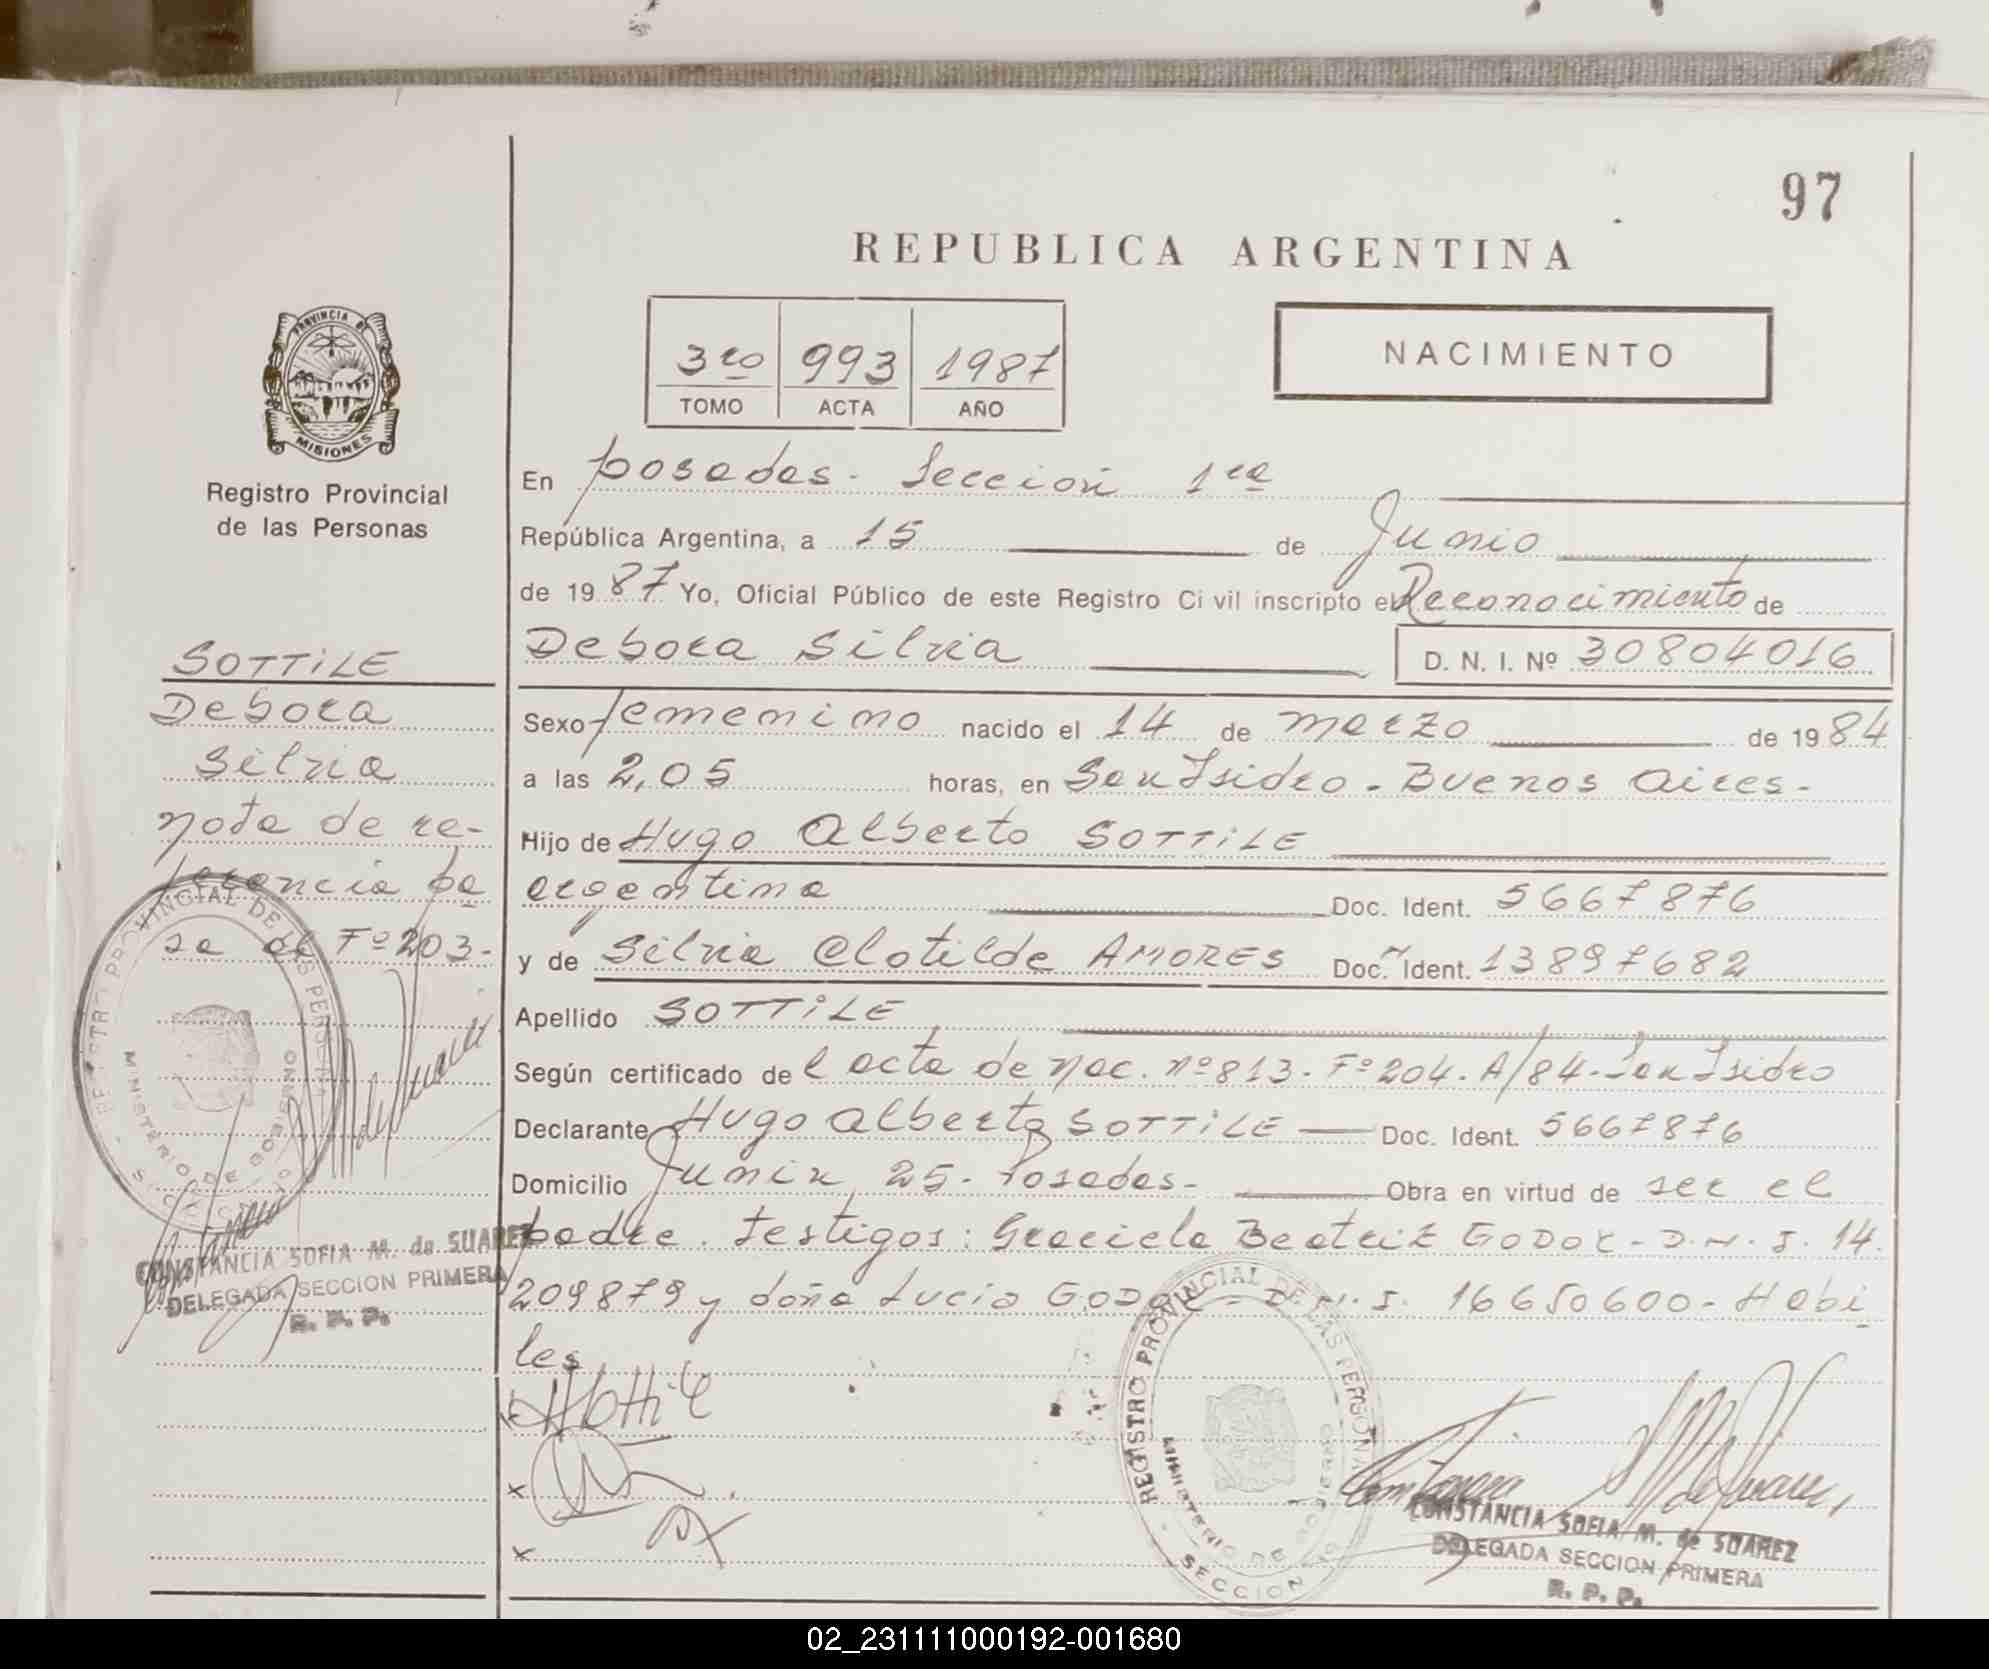 97
REPUBLICA ARGENTINA
3ro 993 1987
TOMO ACTA AÑO
NACIMIENTO
PROVINCIA DE
MISIONES
Registro Provincial
de las Personas
SOTTILE
Debora
Silvia
nota de re-
ferencia pa
sa al Fº 203-
REGISTRO PROVINCIAL DE LAS PERSONAS
MINISTERIO DE GOBIERNO
CONSTANCIA SOFIA M. de SUAREZ
DELEGADA SECCION PRIMERA
R. P. P.
En posadas - Sección 1ra
República Argentina, a 15 de Junio
de 1987 Yo, Oficial Público de este Registro Civil inscripto el Reconocimiento de
Debora Silvia D. N. I. Nº 30804016
Sexo femenino nacido el 14 de marzo de 1984
a las 2,05 horas, en San Isidro - Buenos Aires -
Hijo de Hugo Alberto SOTTILE
argentina Doc. Ident. 5667876
y de Silvia Clotilde AMORES Doc. Ident. 13897682
Apellido SOTTILE
Según certificado del acta de nac. nº 813 - Fº 204 - A/84 - San Isidro
Declarante Hugo Alberto SOTTILE Doc. Ident. 5667876
Domicilio Junin 25 - Posadas - Obra en virtud de ser el
padre. Testigos: Graciela Beatriz GODOY - D.N.I. 14.
209879 y doña Lucia GODOY - D.N.I. 16650600 - Habi
les
x
x
REGISTRO PROVINCIAL DE LAS PERSONAS
MINISTERIO DE GOBIERNO
SECCION 1
CONSTANCIA SOFIA M. de SUAREZ
DELEGADA SECCION PRIMERA
R. P. P.
02_231111000192-001680